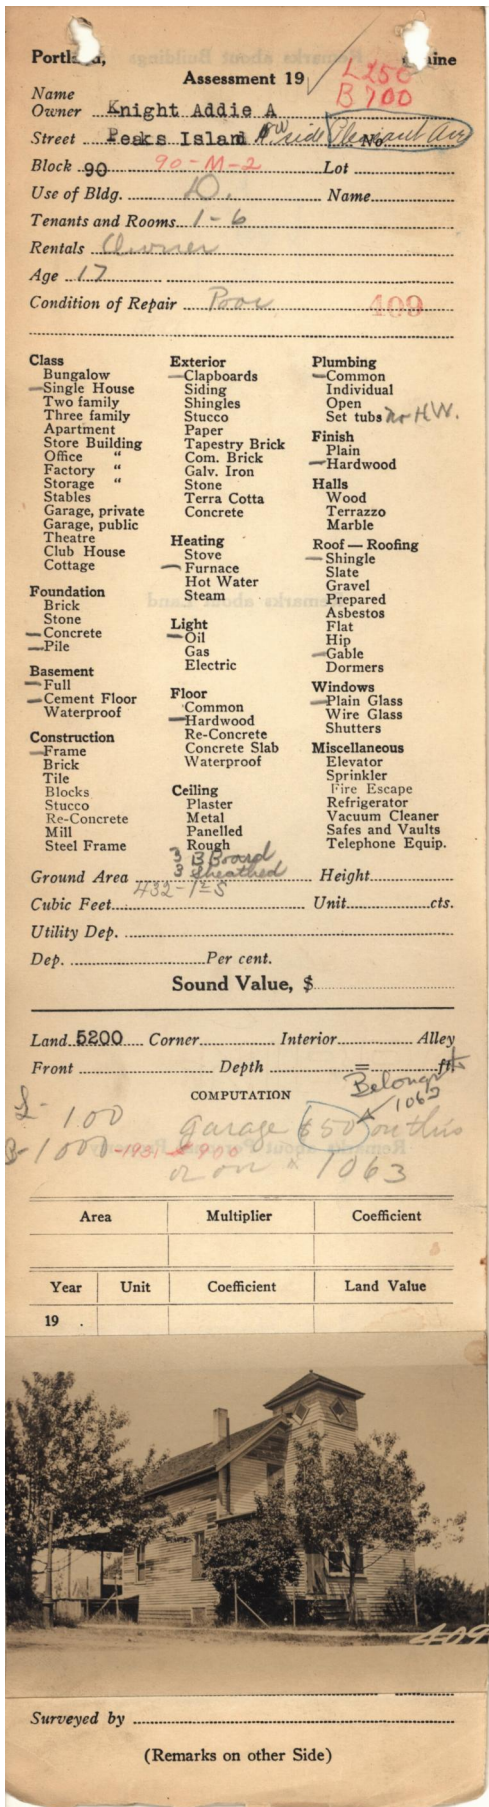 Portland, Maine
Assessment 19
L 250
B 700
Name
Owner Knight Addie A
Street Peaks Island SW side Pleasant Ave No.
Block 90 90-M-2 Lot
Use of Bldg. D. Name
Tenants and Rooms 1-6
Rentals Owner
Age 17
Condition of Repair Poor 409
Class
Bungalow
Single House
Two family
Three family
Apartment
Store Building
Office "
Factory "
Storage "
Stables
Garage, private
Garage, public
Theatre
Club House
Cottage
Foundation
Brick
Stone
Concrete
Pile
Basement
Full
Cement Floor
Waterproof
Construction
Frame
Brick
Tile
Blocks
Stucco
Re-Concrete
Mill
Steel Frame
Exterior
Clapboards
Siding
Shingles
Stucco
Paper
Tapestry Brick
Com. Brick
Galv. Iron
Stone
Terra Cotta
Concrete
Heating
Stove
Furnace
Hot Water
Steam
Light
Oil
Gas
Electric
Floor
Common
Hardwood
Re-Concrete
Concrete Slab
Waterproof
Ceiling
Plaster
Metal
Panelled
Rough
3 B Board
3 Sheathed
Plumbing
Common
Individual
Open
Set tubs no H.W.
Finish
Plain
Hardwood
Halls
Wood
Terrazzo
Marble
Roof — Roofing
Shingle
Slate
Gravel
Prepared
Asbestos
Flat
Hip
Gable
Dormers
Windows
Plain Glass
Wire Glass
Shutters
Miscellaneous
Elevator
Sprinkler
Fire Escape
Refrigerator
Vacuum Cleaner
Safes and Vaults
Telephone Equip.
Ground Area 432-1 S Height
Cubic Feet Unit cts.
Utility Dep.
Dep. Per cent.
Sound Value, $
Land 5200 Corner Interior Alley
Front Depth = ft
Belongs to
1063
COMPUTATION
L- 100 garage $50 on this
B-1000 -1931 900 or on 1063
Area Multiplier Coefficient
Year Unit Coefficient Land Value
19 .
409
Surveyed by
(Remarks on other Side)